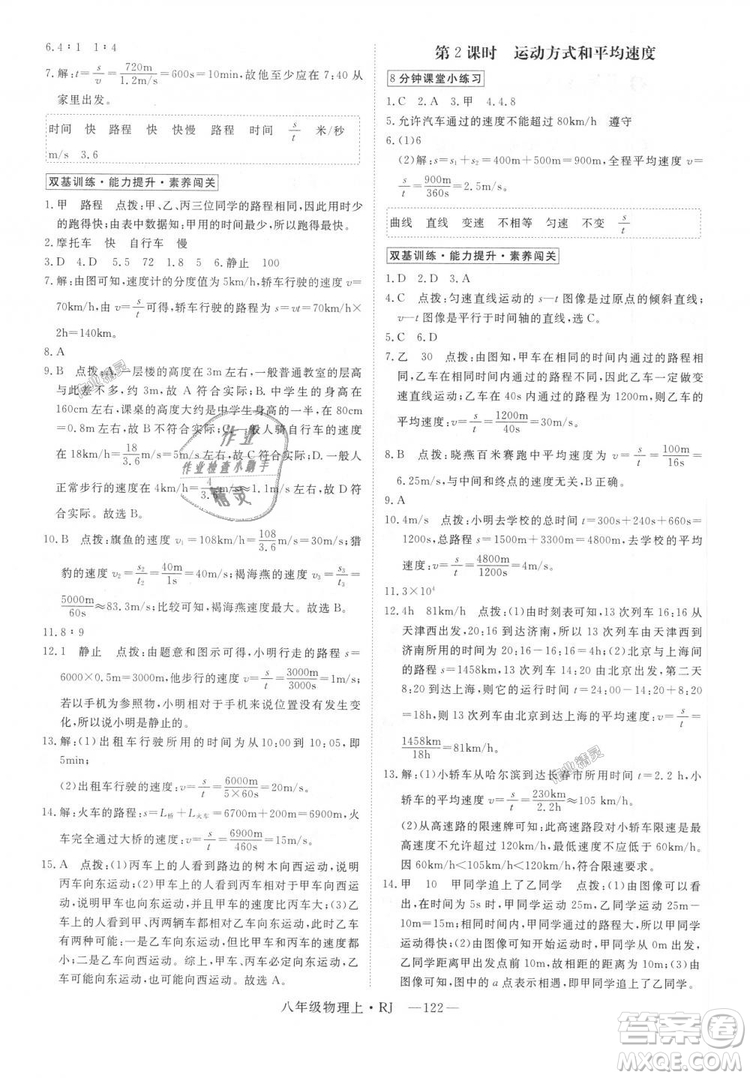 6.4∶1 1∶4
7.解：t=s/v=720m/1.2m/s=600s=10min，故他至少应在7:40从
家里出发。
时间 快 路程 快 快慢 路程 时间 s/t 米/秒
m/s 3.6
双基训练·能力提升·素养闯关
1.甲 路程 点拨：甲、乙、丙三位同学的路程相同，用时少
的跑得快；由表中数据知：甲用的时间最短，所以甲跑得快。
2.摩托车 快 自行车 慢
3.D 4.D 5.5 72 6.静止 100
7.解：由图可知，速度计的分度值为5km/h，轿车的速度为v=
70km/h，由v=s/t可得，轿车行驶的路程为s=vt=70km/h×
2h=140km。
8.A
9.B 点拨：A.一层楼的高度在3m左右，一般普通教室的层高与
此差不多，约3m，故A符合实际；B.中学生的身高在
160cm左右，课桌的高度大约是中学生身高的一半，在80cm
=0.8m左右，故B不符合实际；C.一般人骑自行车的速度在
18km/h=18/3.6m/s=5m/s左右，故C符合实际；D.一般人
正常步行的速度在4km/h=4/3.6m/s≈1.1m/s左右，故D符合
实际。故选B。
10.B 点拨：旗鱼的速度v₁=108km/h=108/3.6m/s=30m/s；猎
豹的速度v₂=s₂/t₂=40m/1s=40m/s；褐海燕的速度v₃=s₃/t₃=
5000m/60s≈83.3m/s；比较可知，褐海燕的速度最大。故选B。
11.8∶9
12.1 静止 点拨：由题意和图示可得，小明行走的路程：s=
6000×0.5m=3000m，他步行的速度v=s/t=3000m/3000s=1m/s；
若以手机为参照物，小明相对于手机来说，其位置没有发
生变化，所以说小明是静止的。
13.解：(1)出租车行驶所用的时间为t=10:05-10:00=
5min；
(2)出租车行驶的速度v=s/t=6000m/5×60s=20m/s。
14.解：火车的路程：s=L桥+L火车=6700m+200m=6900m，火
车全部通过大桥的速度v=s/t=6900m/460s=15m/s。
15.A 点拨：(1)丙车上的人看到路边的树木向西运动，说明
丙车向东运动。(2)乙车上的人看到甲车向东运动，说明
甲车可能向东运动。(3)甲车上的人看到丙车向西运动，
因为甲、丙两辆车都向东运动，所以甲车快。此时乙车有
两种可能：①乙车向东运动，但比甲车慢；②乙车向西运
动，乙车可能向东运动，也可能向西运动。综上，甲车一定
向东运动，乙车可能向东运动，也可能向西运动。故选A。
第2课时 运动方式和平均速度
8分钟课堂小练习
1.C 2.A 3.甲 4.4.8
5.允许汽车通过的速度不能超过80km/h 遵守
6.(1)6
(2)解：s=s₁+s₂=400m+500m=900m，全程平均速度v=
s/t=900m/360s=2.5m/s。
曲线 直线 变速 不相等 匀速 不变 s/t
双基训练·能力提升·素养闯关
1.D 2.D 3.A
4.C 点拨：匀速直线运动的s—t图像是过原点的倾斜直线；
v—t图像是平行于时间轴的直线，故选C。
5.C 6.D
7.乙 30 点拨：由图知，甲车在相同的时间内通过的路程相
同，乙车在相同的时间内通过的路程不相同，所以乙车一定做变
速直线运动。由图知，乙车在40s内通过的路程为1200m，则乙车
的平均速度v=s/t=1200m/40s=30m/s。
8.B 点拨：晓燕百米赛跑中的平均速度为v=s/t=100m/16s=
6.25m/s，与中间和终点的速度无关，故B正确。
9.A
10.4m/s 点拨：小明去学校的总时间t=200s+1000s=
1200s，由图可知，他去学校的总路程s=4800m，则他去学
校的平均速度：v=s/t=4800m/1200s=4m/s。
11.3×10⁴
12.4h 81km/h 点拨：(1)由时刻表可知，13次列车16:16从
天津西出发，20:16到达济南，所以t=20:16-16:16=
4h。(2)由时刻表可知，13次列车由北京出发，第二天
8:00到达上海，所以运行时间为t=24:00-14:00+8:00
=18h，所以，13次列车的平均速度为v=s/t=
1458km/18h=81km/h。
13.解：(1)小轿车从哈尔滨到达长春市所用的时间t=2.2h，小轿
车的平均速度v=s/t=230km/2.2h≈105km/h。
(2)从高速路的限速牌可知：此高速路段对小轿车行驶的
最高限速是120km/h，最低限速是60km/h。
14.甲 10 甲同学追上了乙同学 点拨：(1)由图像可以看
出，在时间为5s时，甲同学通过的路程大于乙同学通过的
路程，所以甲同学运动得快。(2)由图像可知甲同学比乙
同学运动得快，并且开始运动时，乙同学在甲同学前面
10m处。(3)由图像可以看出a点是甲同学追上了乙同学。
八年级物理上·RJ —122—
作业
作业检查小助手
精灵
作业精灵
答案圈
MXQE.COM